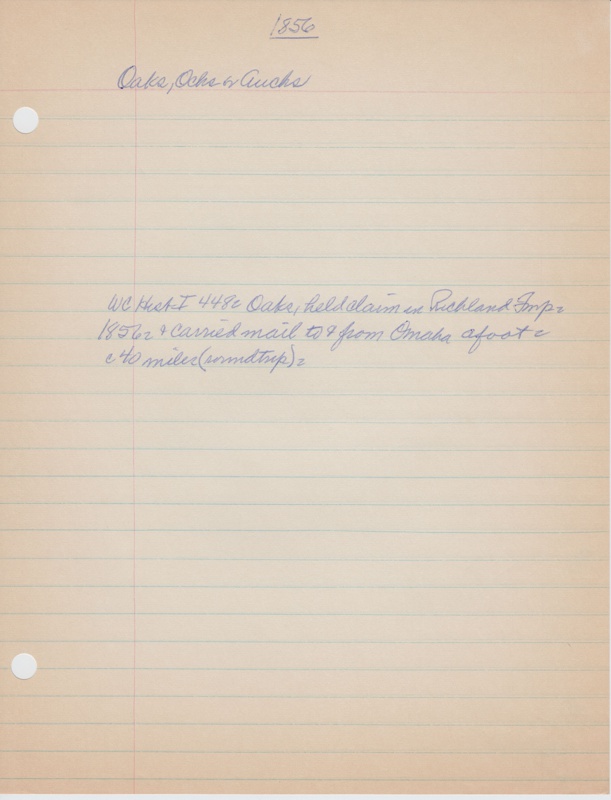 1856
Oaks, Ochs or Auchs
WC Hist I 448: Oaks, held claim in Richland Twp:
1856: & carried mail to & from Omaha afoot:
c 40 miles (roundtrip):